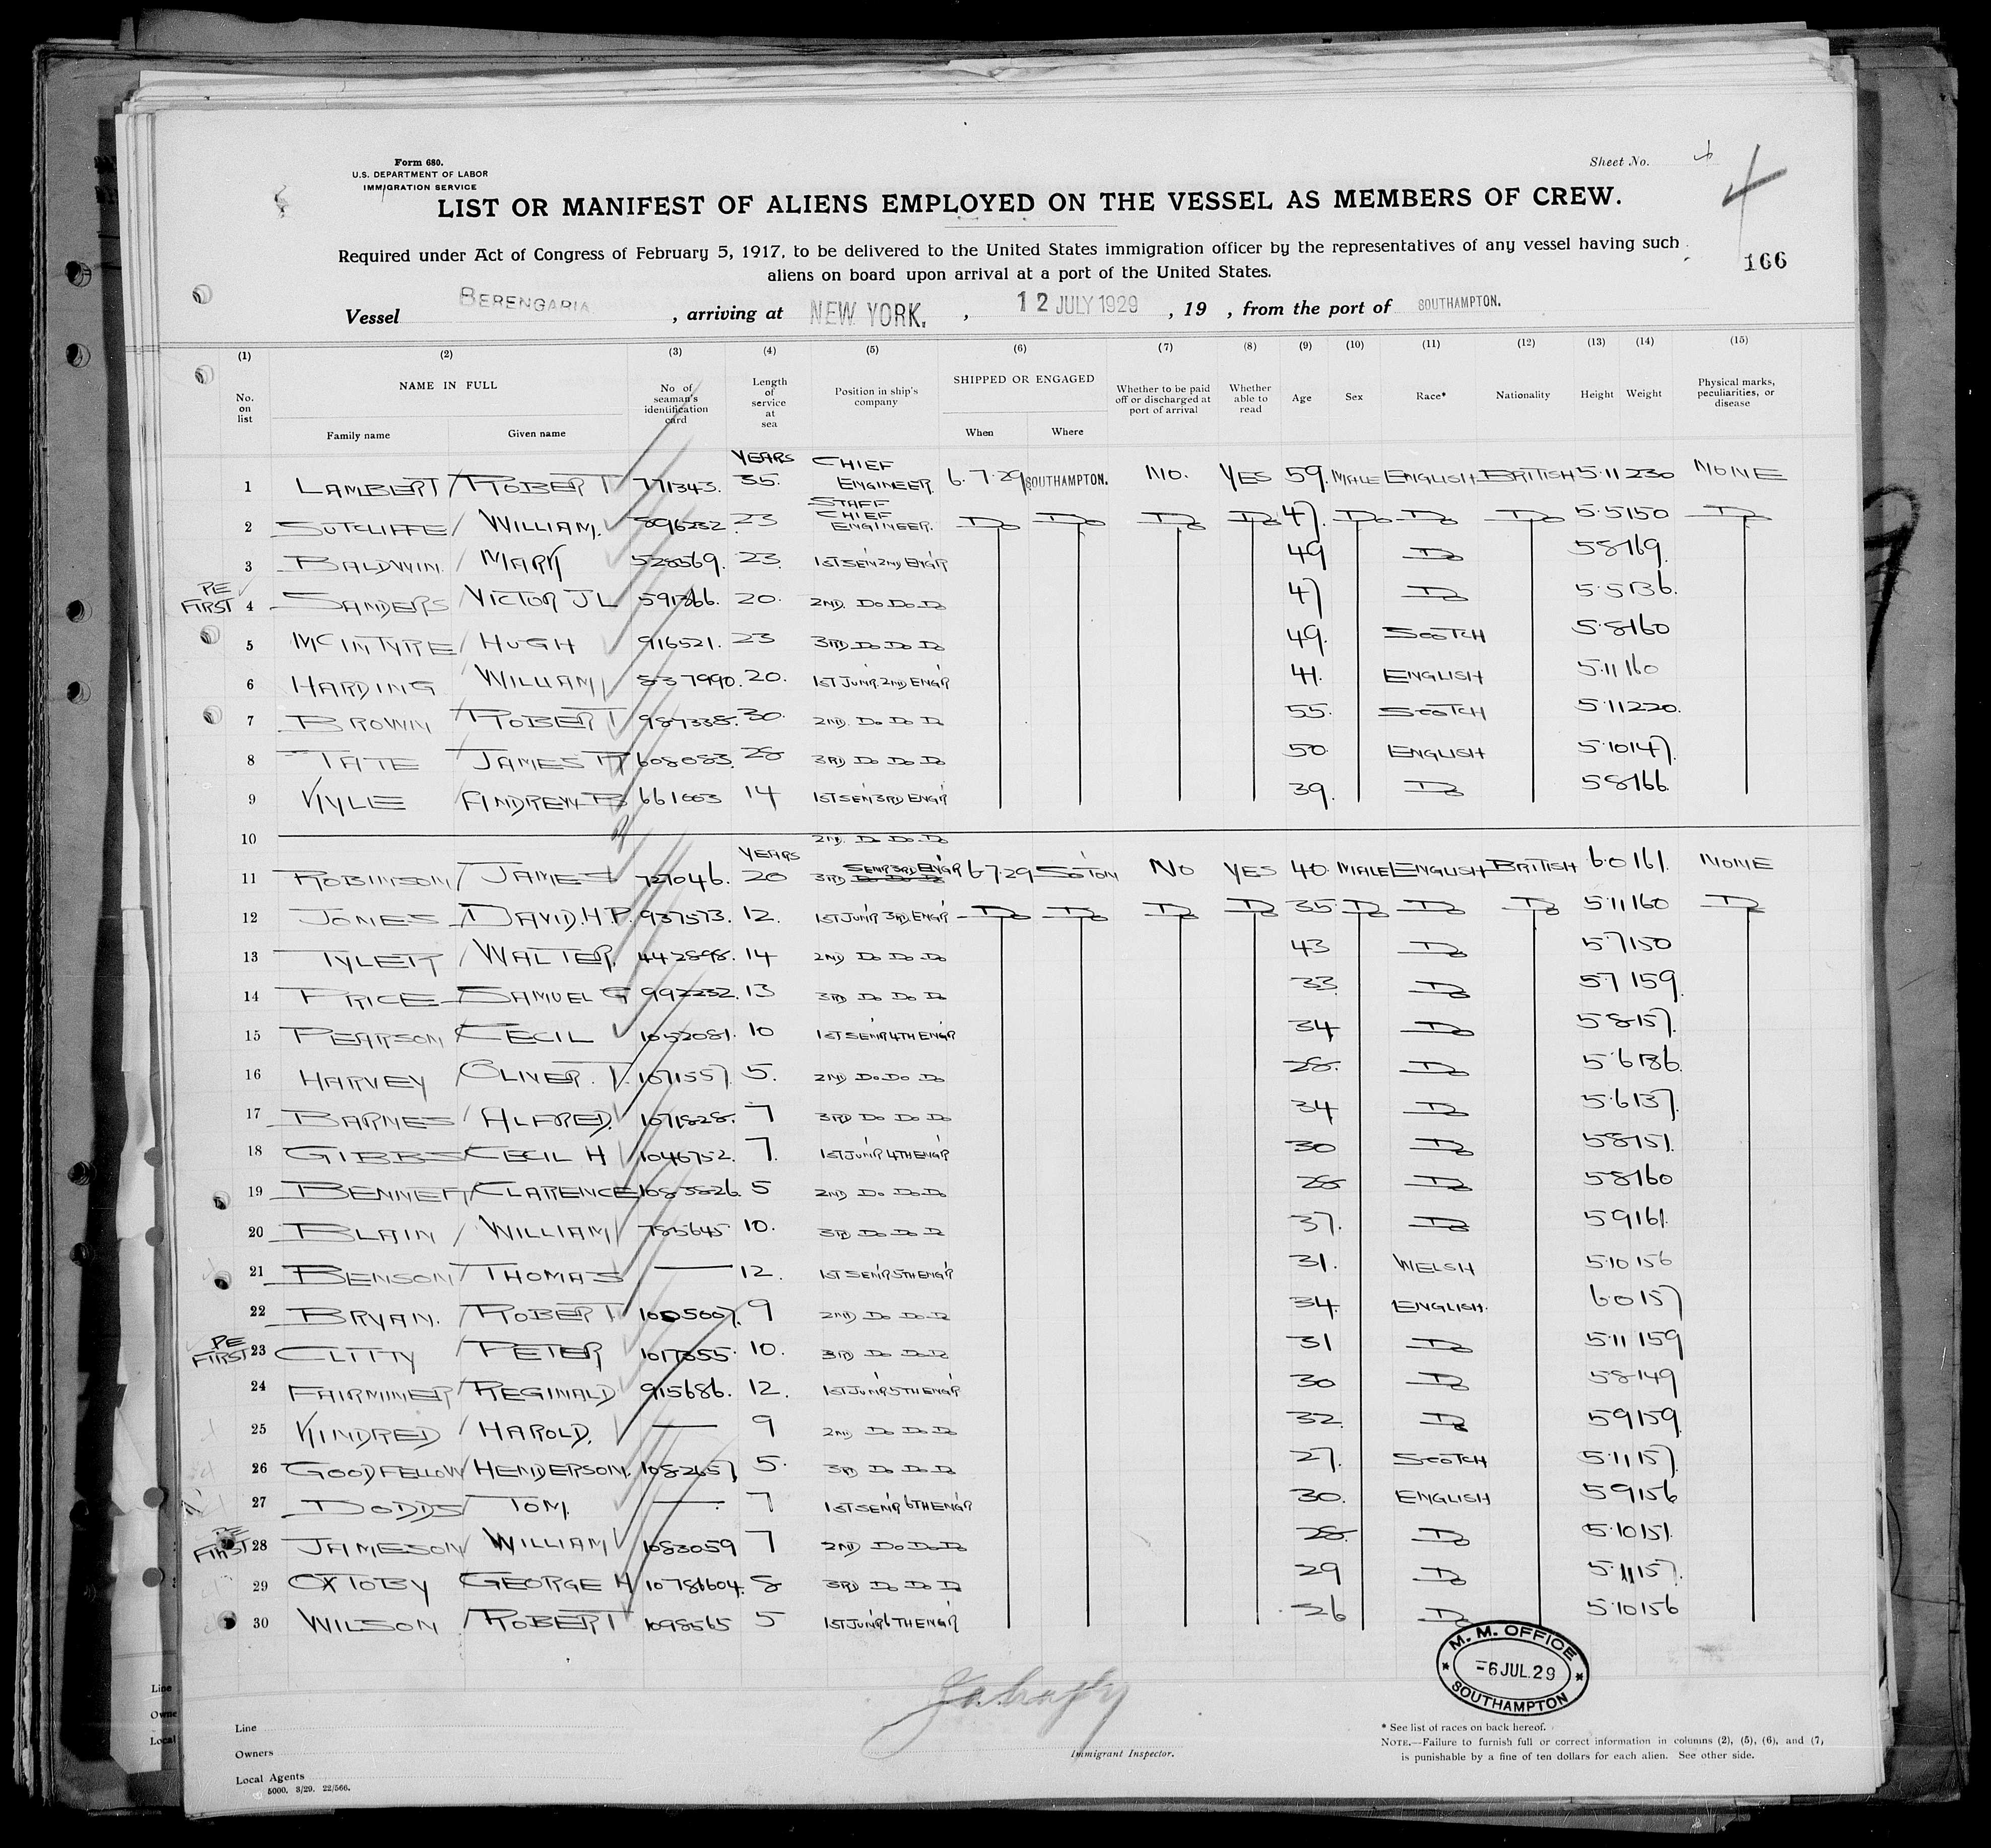 Form 680.
U.S. DEPARTMENT OF LABOR
IMMIGRATION SERVICE
Sheet No.
LIST OR MANIFEST OF ALIENS EMPLOYED ON THE VESSEL AS MEMBERS OF CREW.
Required under Act of Congress of February 5, 1917, to be delivered to the United States immigration officer by the representatives of any vessel having such
aliens on board upon arrival at a port of the United States.
166
Vessel BERENGARIA , arriving at NEW YORK. , 12 JULY 1929 , 19 , from the port of SOUTHAMPTON.
(1) (2) (3) (4) (5) (6) (7) (8) (9) (10) (11) (12) (13) (14) (15)
No. on list NAME IN FULL Family name Given name No of seaman's identification card Length of service at sea Position in ship's company SHIPPED OR ENGAGED When Where Whether to be paid off or discharged at port of arrival Whether able to read Age Sex Race* Nationality Height Weight Physical marks, peculiarities, or disease
1 LAMBERT ROBERT 771343. YEARS 35. CHIEF ENGINEER. 6.7.29 SOUTHAMPTON. NO. YES 59. MALE ENGLISH BRITISH 5.11 230 NONE
2 SUTCLIFFE WILLIAM. 896232 23 STAFF CHIEF ENGINEER. Do Do Do Do 47. Do Do Do 5.5 150 Do
3 BALDWIN. MARK 528569. 23 1ST SEN 2ND ENGR 49 Do 5 8 169.
PE FIRST 4 SANDERS VICTOR J L 20. 2ND. Do Do Do 47 Do 5.5 136.
5 MCINTYRE HUGH 916521. 23 3RD Do Do Do 49. SCOTCH 5.8 160
6 HARDING WILLIAM 537990. 20. 1ST JUNR. 2ND ENGR 41. ENGLISH 5.11 160
7 BROWN ROBERT 987338. 30. 2ND. Do Do Do 55. SCOTCH 5.11 220.
8 TATE JAMES 608083. 28 3RD Do Do Do 50. ENGLISH 5.10 147.
9 KYLIE ANDREW B 14 1ST SEN 3RD ENGR 39. Do 5 8 166.
10 2ND. Do Do Do
11 ROBINSON JAMES 727046. YEARS 20 3RD SENR 3RD ENGR 6 7.29 SO'TON NO YES 40. MALE ENGLISH BRITISH 6.0 161. NONE
12 JONES DAVID. H. P. 937573. 12. 1ST JUNR 3RD. ENGR Do Do Do Do 35 Do Do Do 5.11 160 Do
13 TYLETT WALTER. 442898. 14 2ND Do Do Do 43 Do 5.7 150
14 PRICE SAMUEL G 992232. 13 3RD Do Do Do 33. Do 5 7 159.
15 PEARSON CECIL 1052081. 10 1ST SENR 4TH ENGR 34 Do 5 8 157.
16 HARVEY OLIVER. 1071557. 5. 2ND Do Do Do 28. Do 5.6 136.
17 BARNES ALFRED. 1071828. 7 3RD Do Do Do 34 Do 5.6 137.
18 GIBBS CECIL H 1046752. 7. 1ST JUNR 4TH ENGR 30 Do 5 8 151.
19 BENNETT CLARENCE 1083826. 5 2ND Do Do Do 28 Do 5 8 160
20 BLAIN WILLIAM 785645 10. 3RD Do Do Do 37. Do 5 9 161.
21 BENSON THOMAS — 12. 1ST SENR 5TH ENGR 31. WELSH 5.10 156
22 BRYAN. ROBERT 9 2ND Do Do Do 34. ENGLISH. 6.0 157
PE FIRST 23 CLITTY PETER 1017355. 10. 3RD Do Do Do 31 Do 5.11 159
24 FAIRMINER REGINALD 915686. 12. 1ST JUNR 5TH ENGR 30 Do 5 8 149
25 KINDRED HAROLD. — 9 2ND Do Do Do 32. Do 5 9 159.
26 GOODFELLOW HENDERSON. 1082657 5. 3RD Do Do Do 27. SCOTCH 5.11 157.
27 DODDS TOM. — 7 1ST SENR 6TH ENGR 30. ENGLISH 5 9 156
PE FIRST 28 JAMESON WILLIAM 1083059 7 2ND Do Do Do 28. Do 5.10 151.
29 OXTOBY GEORGE H 10786604. 8 3RD Do Do Do 29 Do 5.11 157.
30 WILSON ROBERT 1098565 5 1ST JUNR 6TH ENGR 26 Do 5.10 156
M. M. OFFICE
-6 JUL. 29
SOUTHAMPTON
Line
Owners
Local Agents
5000. 3/29. 22/566.
Immigrant Inspector.
* See list of races on back hereof.
NOTE.—Failure to furnish full or correct information in columns (2), (5), (6), and (7,
is punishable by a fine of ten dollars for each alien. See other side.
Line
Owne
Local